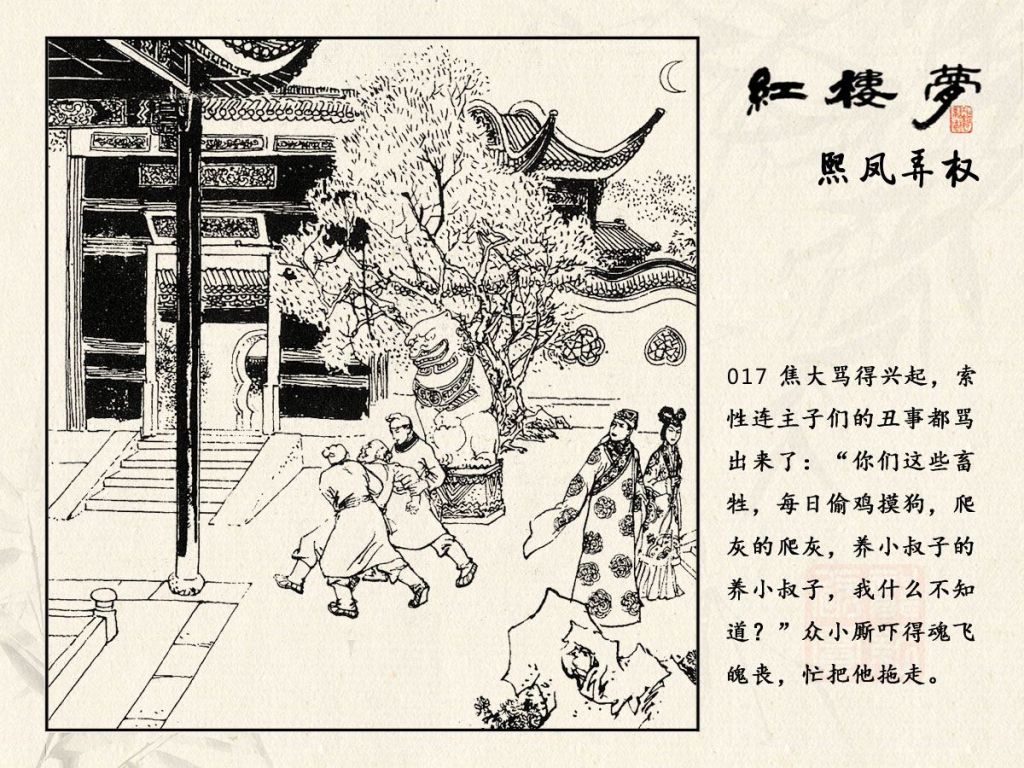 红楼梦
熙凤弄权
017 焦大骂得兴起，索
性连主子们的丑事都骂
出来了：“你们这些畜
牲，每日偷鸡摸狗，爬
灰的爬灰，养小叔子的
养小叔子，我什么不知
道？”众小厮吓得魂飞
魄丧，忙把他拖走。